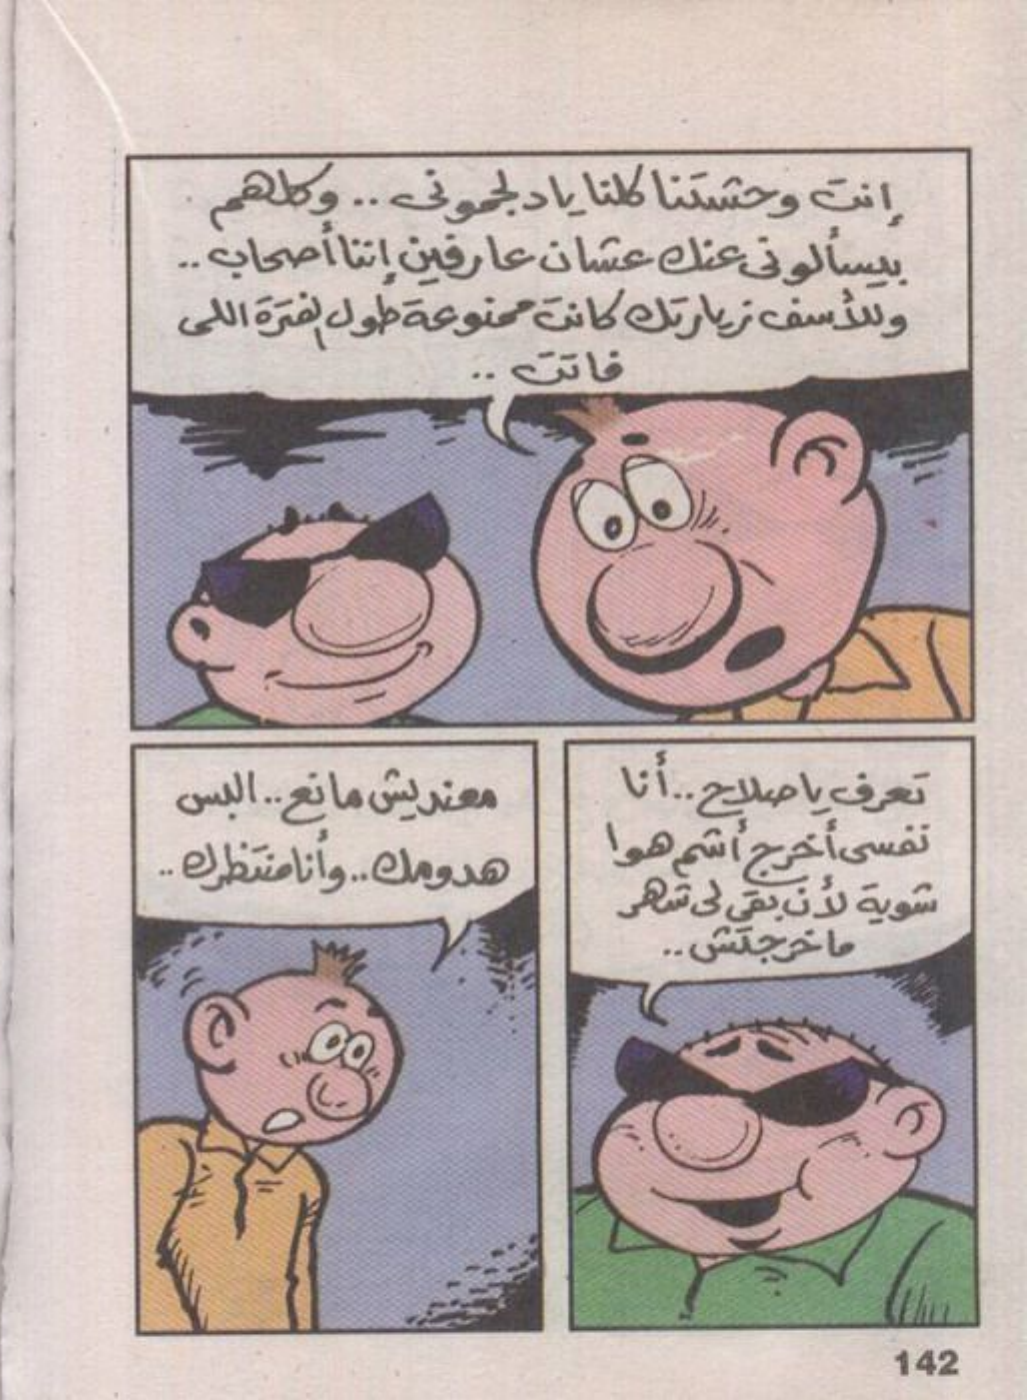 إنت وحشتنا كلنا ياد لجموني .. وكلهم
بيسألوني عنك عشان عارفين إننا أصحاب ..
وللأسف زيارتك كانت ممنوعة طول الفترة اللي
فاتت ..
تعرف يا صلاح .. أنا
نفسى أخرج أشم هوا
شوية لأن بقى لى شهر
ما خرجتش ..
معنديش مانع .. البس
هدومك .. وأنا منتظرك ..
142